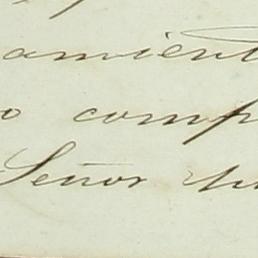 amient
o comp
Señor